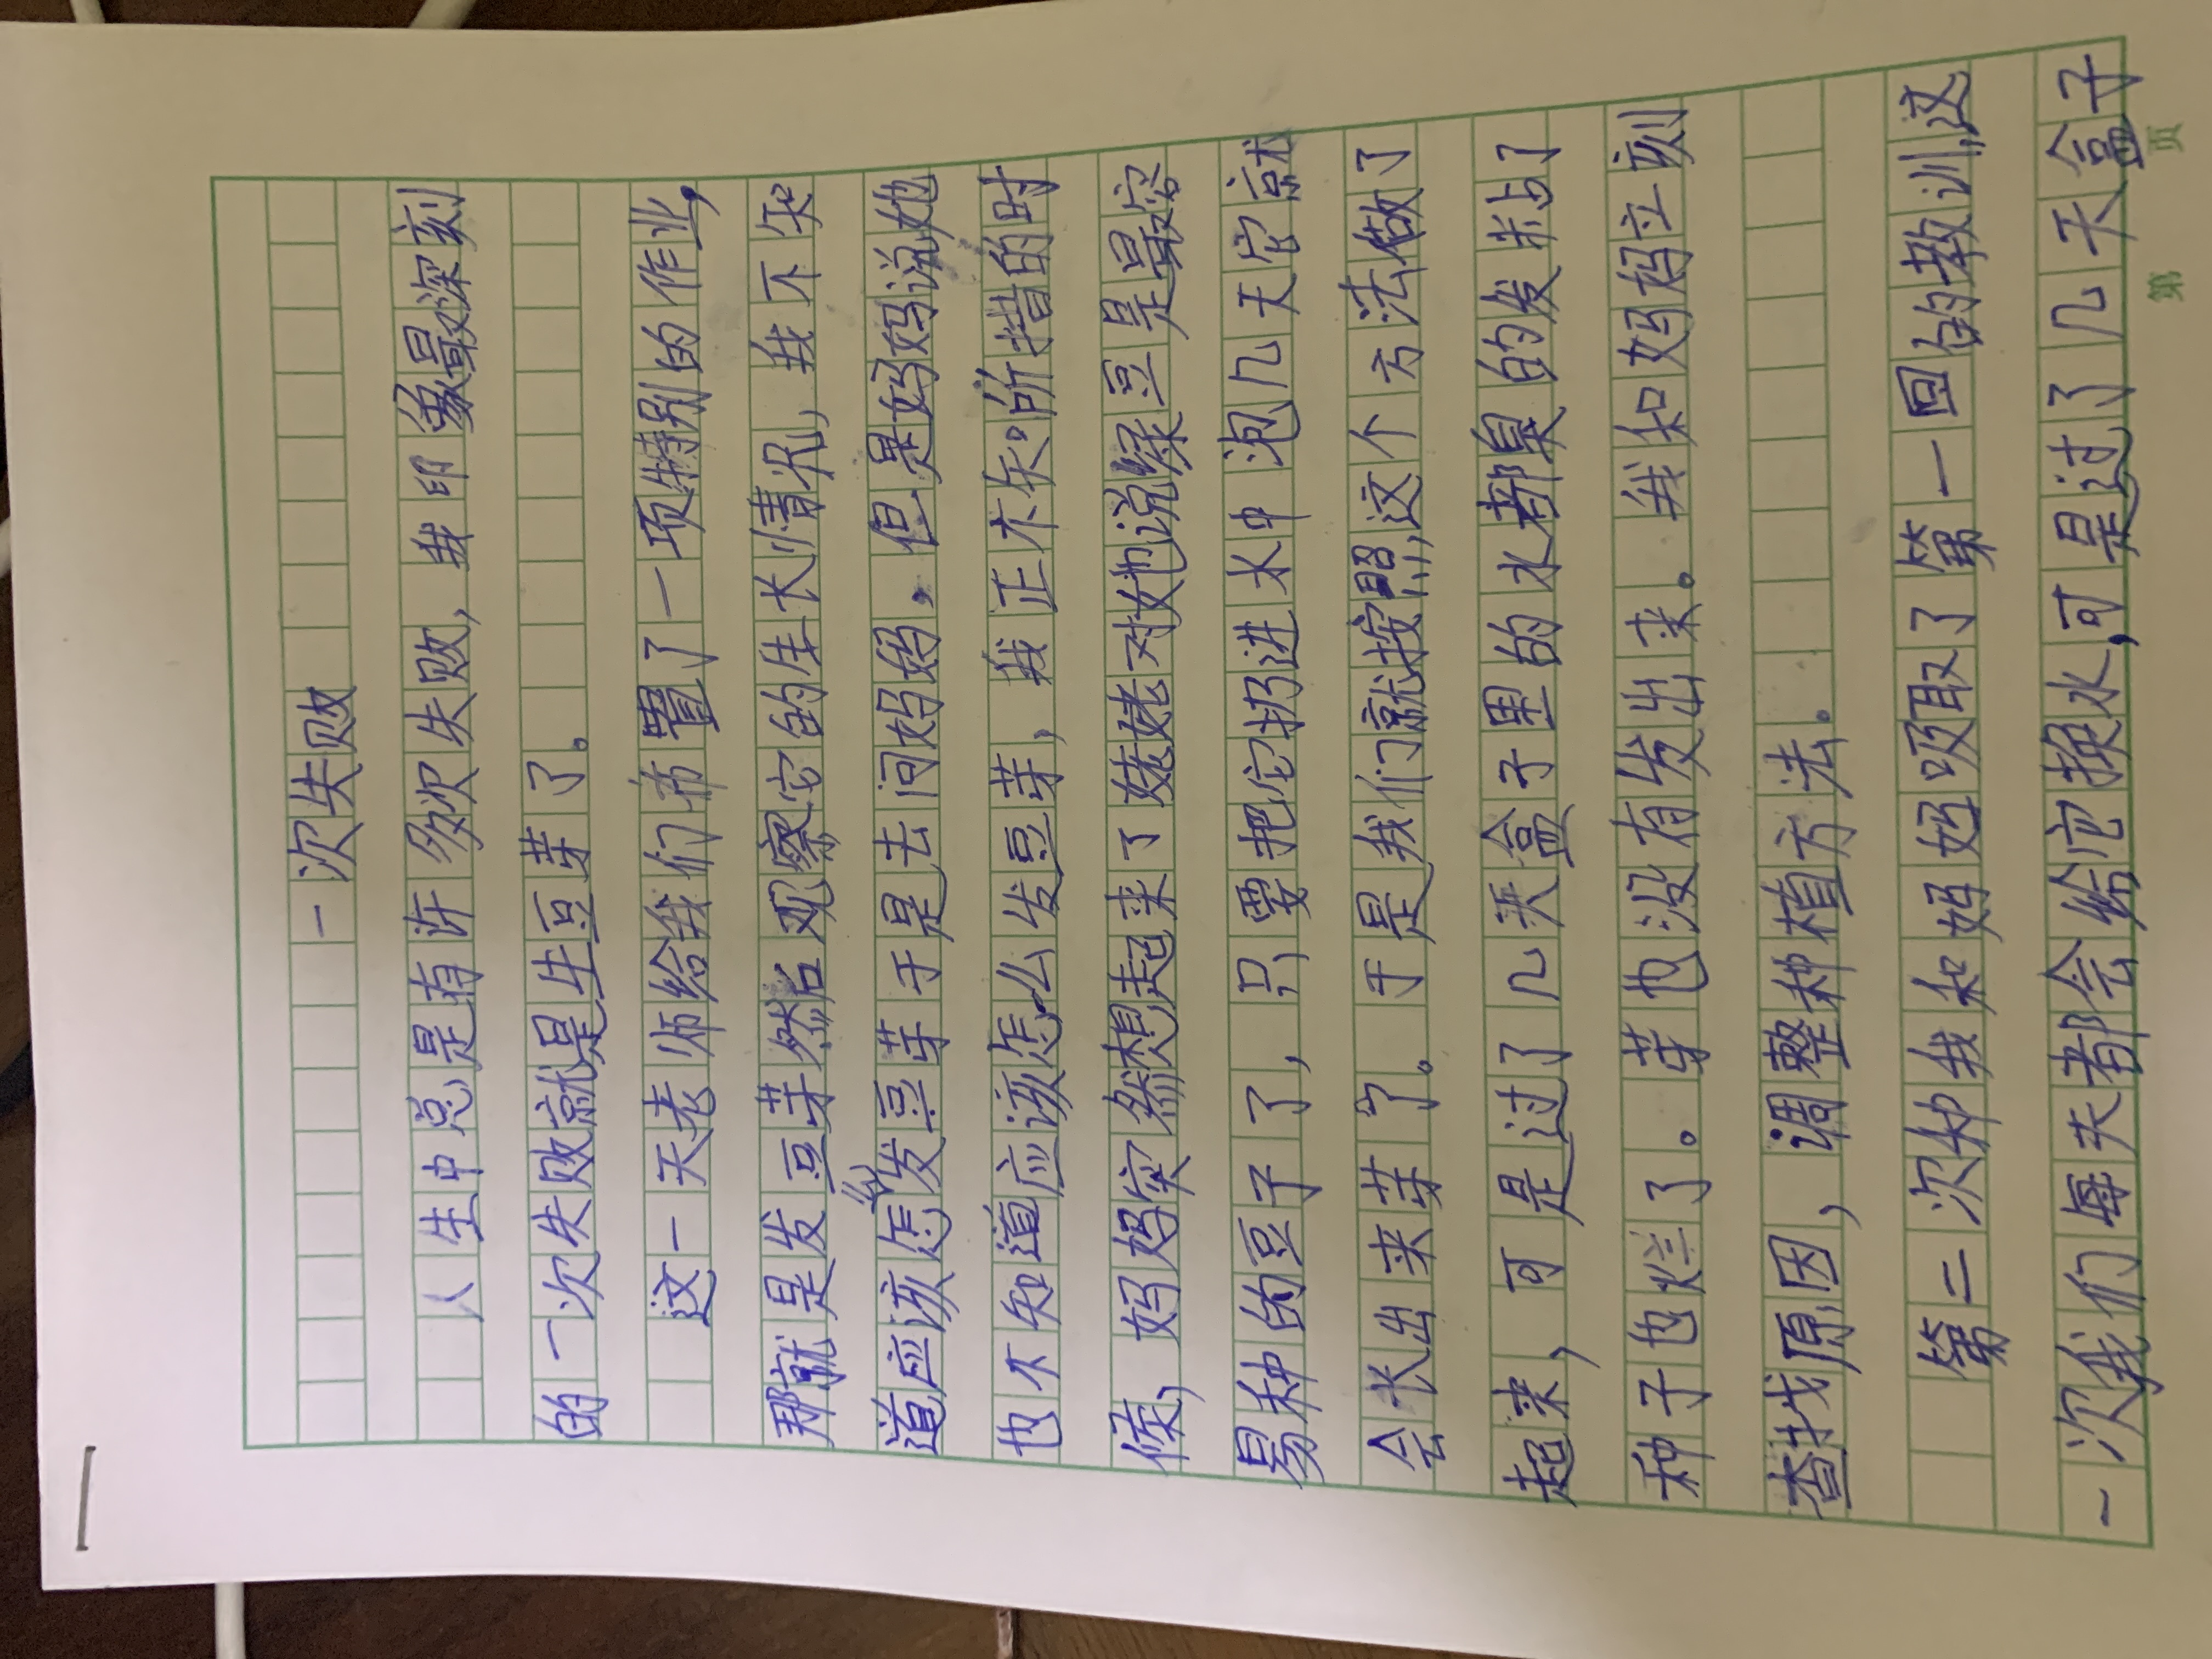 一次失败
人生中总是有许多次失败，我印象最深刻
的一次失败就是生豆芽了。
这一天老师给我们布置了一项特别的作业，
那就是发豆芽然后观察它的生长情况，我不知
道应该怎么发豆芽于是去问妈妈。但是妈妈说她
也不知道应该怎么发豆芽，我正不知所措的时
候，妈妈突然想起来了姥姥对她说绿豆是最容
易种的豆子了，只要把它扔进水中泡几天它就
会长出来芽了。于是我们就按照这个方法做了
起来，可是过了几天盒子里的水都臭的发粘了
种子也烂了。芽也没有发出来。我和妈妈立刻
查找原因，调整种植方法。
第二次种我和妈妈吸取了第一回的教训，这
一次我们每天都会给它换水，可是过了几天盒子
第 页